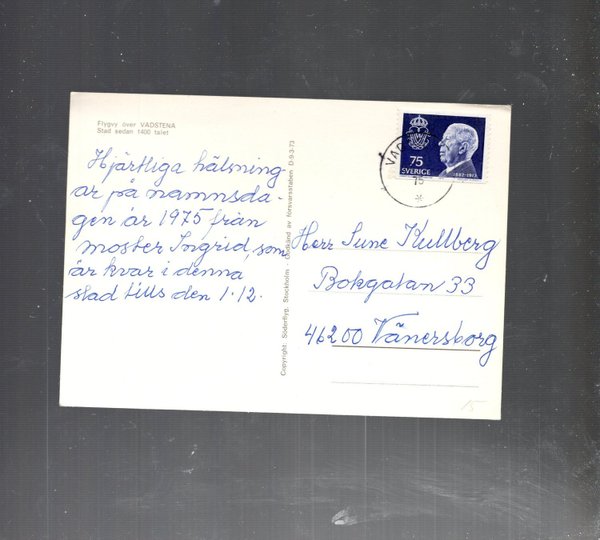 Flygvy över VADSTENA
Stad sedan 1400 talet
Hjärtliga hälsning
ar på namnsda-
gen år 1975 från
moster Ingrid, som
är kvar i denna
stad tills den 1.12.
Copyright: Söderflyg. Stockholm - Godkänd av försvarsstaben D-9.3-73
75
SVERIGE
1882-1973
VAD
75
Herr Sune Kullberg
Bokgatan 33
46200 Vänersborg
15